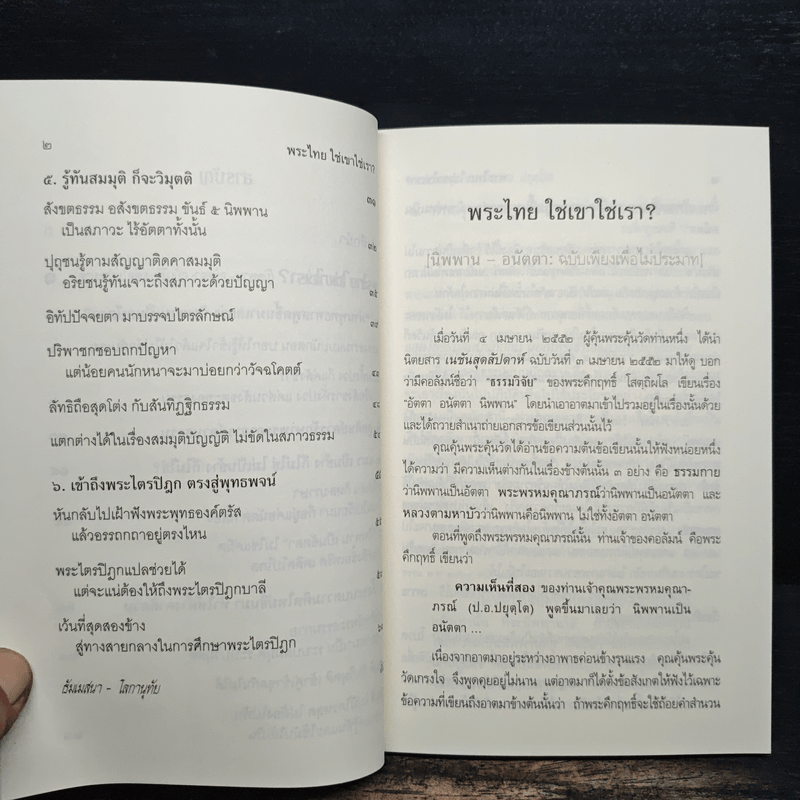 ๒
พระไทย ใช่เขาใช่เรา?
๕. รู้ทันสมมุติ ก็จะวิมุตติ
๓๑
สังขตธรรม อสังขตธรรม ขันธ์ ๕ นิพพาน
เป็นสภาวะ ไร้อัตตาทั้งนั้น
๓๒
ปุถุชนรู้ตามสัญญาติดคาสมมุติ
อริยชนรู้ทันเจาะถึงสภาวะด้วยปัญญา
๓๕
อิทัปปัจจยตา มาบรรจบไตรลักษณ์
ปริพาชกชอบถกปัญหา
แต่น้อยคนนักหนาจะมาบ่อยกว่าวัจฉโคตต์
ลัทธิถือสุดโต่ง กับสันทิฏฐิกธรรม
แตกต่างได้ในเรื่องสมมุติบัญญัติ ไม่ขัดในสภาวธรรม
๖. เข้าถึงพระไตรปิฎก ตรงสู่พุทธพจน์
หันกลับไปเฝ้าฟังพระพุทธองค์ตรัส
แล้วอรรถกถาอยู่ตรงไหน
พระไตรปิฎกแปลช่วยได้
แต่จะแน่ต้องให้ถึงพระไตรปิฎกบาลี
เว้นที่สุดสองข้าง
สู่ทางสายกลางในการศึกษาพระไตรปิฎก
ธัมมเสนา - โลกานุทัย
พระไทย ใช่เขาใช่เรา?
[นิพพาน – อนัตตา: ฉบับเพียงเพื่อไม่ประมาท]
เมื่อวันที่ ๔ เมษายน ๒๕๕๒ ผู้คุ้นพระคุ้นวัดท่านหนึ่ง ได้นำ
นิตยสาร เนชั่นสุดสัปดาห์ ฉบับวันที่ ๓ เมษายน ๒๕๕๒ มาให้ดู บอก
ว่ามีคอลัมน์ชื่อว่า “ธรรมวิจัย” ของพระคึกฤทธิ์ โสตฺถิผโล เขียนเรื่อง
“อัตตา อนัตตา นิพพาน” โดยนำเอาอาตมาเข้าไปรวมอยู่ในเรื่องนั้นด้วย
และได้ถวายสำเนาถ่ายเอกสารข้อเขียนส่วนนั้นไว้
คุณคุ้นพระคุ้นวัดได้อ่านข้อความต้นข้อเขียนนั้นให้ฟังหน่อยหนึ่ง
ได้ความว่า มีความเห็นต่างกันในเรื่องข้างต้นนั้น ๓ อย่าง คือ ธรรมกาย
ว่านิพพานเป็นอัตตา พระพรหมคุณาภรณ์ว่านิพพานเป็นอนัตตา และ
หลวงตามหาบัวว่านิพพานคือนิพพาน ไม่ใช่ทั้งอัตตา อนัตตา
ตอนที่พูดถึงพระพรหมคุณาภรณ์นั้น ท่านเจ้าของคอลัมน์ คือพระ
คึกฤทธิ์ เขียนว่า
ความเห็นที่สอง ของท่านเจ้าคุณพระพรหมคุณา-
ภรณ์ (ป.อ.ปยุตฺโต) พูดขึ้นมาเลยว่า นิพพานเป็น
อนัตตา ...
เนื่องจากอาตมาอยู่ระหว่างอาพาธค่อนข้างรุนแรง คุณคุ้นพระคุ้น
วัดเกรงใจ จึงพูดคุยอยู่ไม่นาน แต่อาตมาก็ได้ตั้งข้อสังเกตให้ฟังไว้เฉพาะ
ข้อความที่เขียนถึงอาตมาข้างต้นนั้นว่า ถ้าพระคึกฤทธิ์จะใช้ถ้อยคำสำนวน